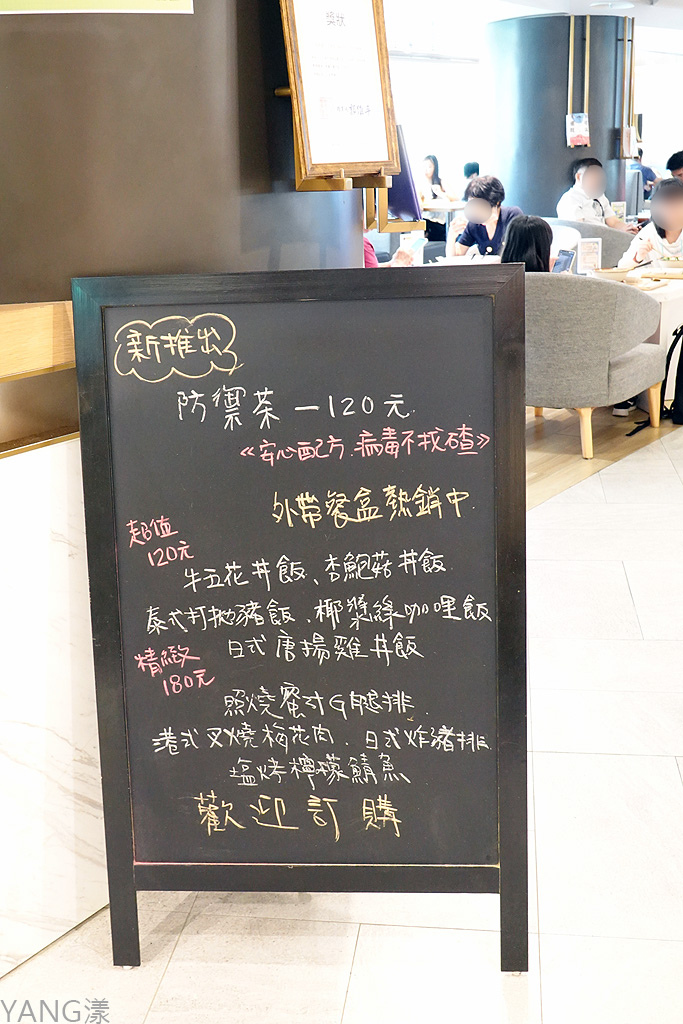 獎狀
新推出
防禦茶 — 120元
《安心配方.病毒不找碴》
外帶餐盒熱銷中
超值
120元
牛五花丼飯、杏鮑菇丼飯
泰式打拋豬飯、椰漿綠咖哩飯
日式唐揚雞丼飯
精緻
180元
照燒蜜汁G腿排
港式叉燒梅花肉、日式炸豬排
塩烤檸檬鯖魚
歡迎訂購
YANG漾